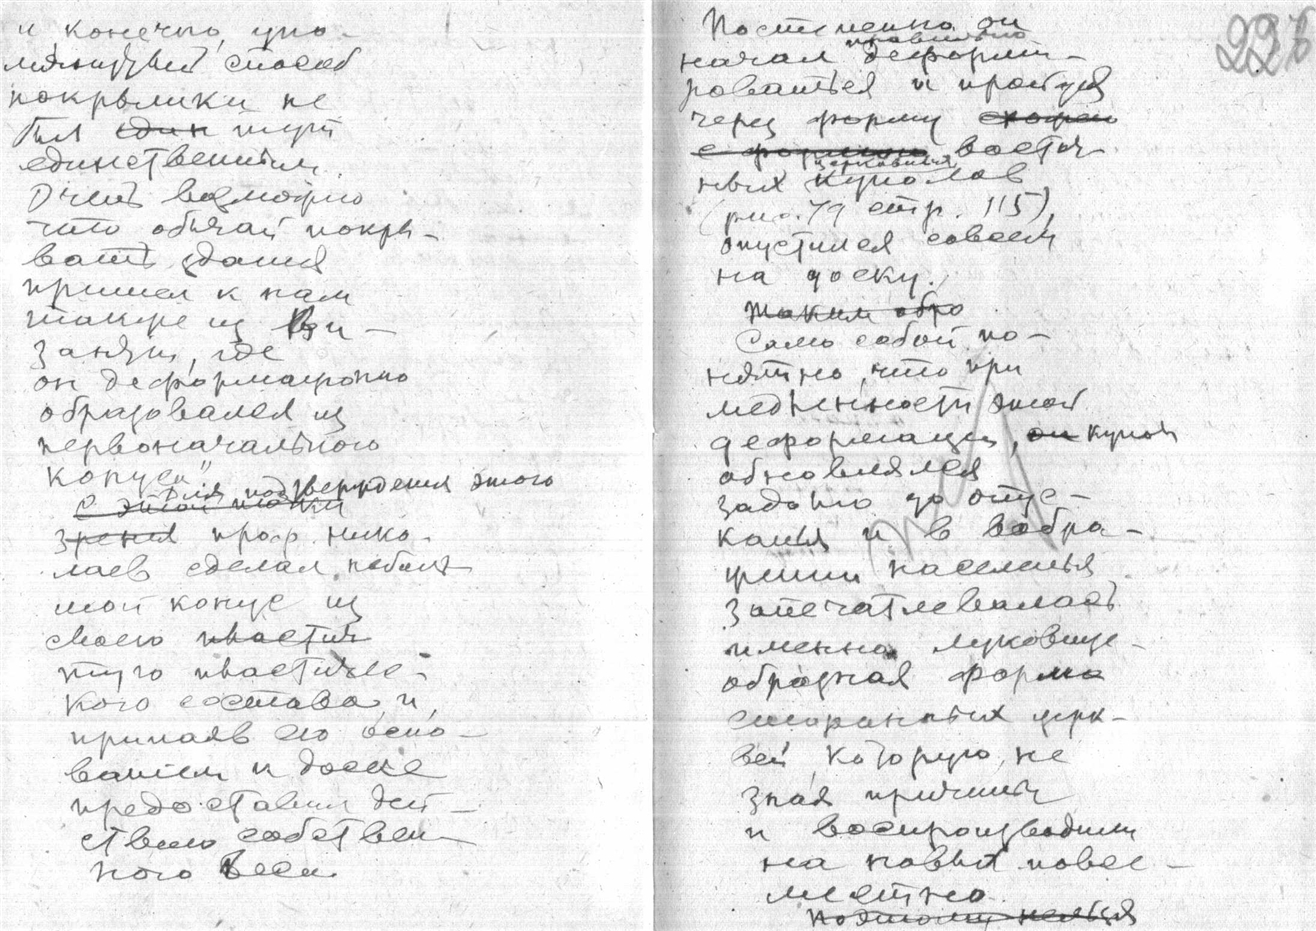 и конечно, упо-
мянутый способ
покрышки не
был един тут
единственным.
Очень возможно
что обычай покры-
вать здания
пришел к нам
также из Ви-
зантии, где
он деформационно
образовался из
первоначального
конуса"
Для подтверждения этого
С этой точки
зрения проф. Нико-
лаев сделал небольш
шой конус из
своего пластич
ного пластичес-
кого состава и,
припаяв его осно-
ванием к доске
предоставил дей-
ствию собствен-
ного веса.
227
Постепенно он
правильно
начал деформи-
роваться и пройдя
через форму
с формою восточ-
церковных
ных куполов
(рис. 79 стр. 115),
опустился совсем
на доску.
Таким обр
Само собой по-
нятно, что при
медленности этой
деформации, он купол
обновлялся
задолго до опус-
канья и в вобра-
жении населенья
запечатлевалась
именно луковице-
образная форма
старинных церк-
вей, которую, не
зная причины
и воспроизводили
на новых повсе-
местно.
Поэтому нельзя